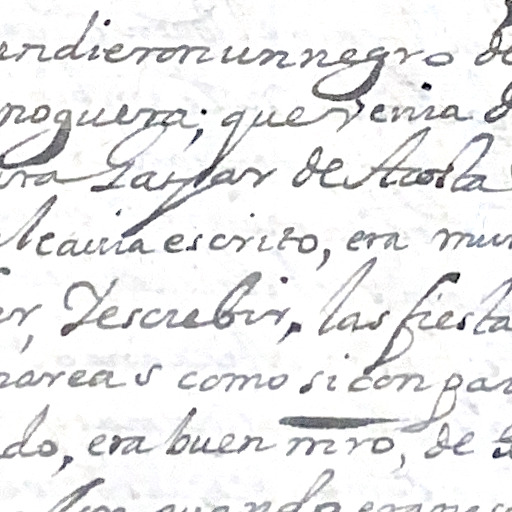 endieron un negro de
noguera; que venia d
ra Gaspar de Acosta
le avia escrito, era mui
er, Y escrebir, las fiesta
nareas como si con gar
do, era buen mro, de